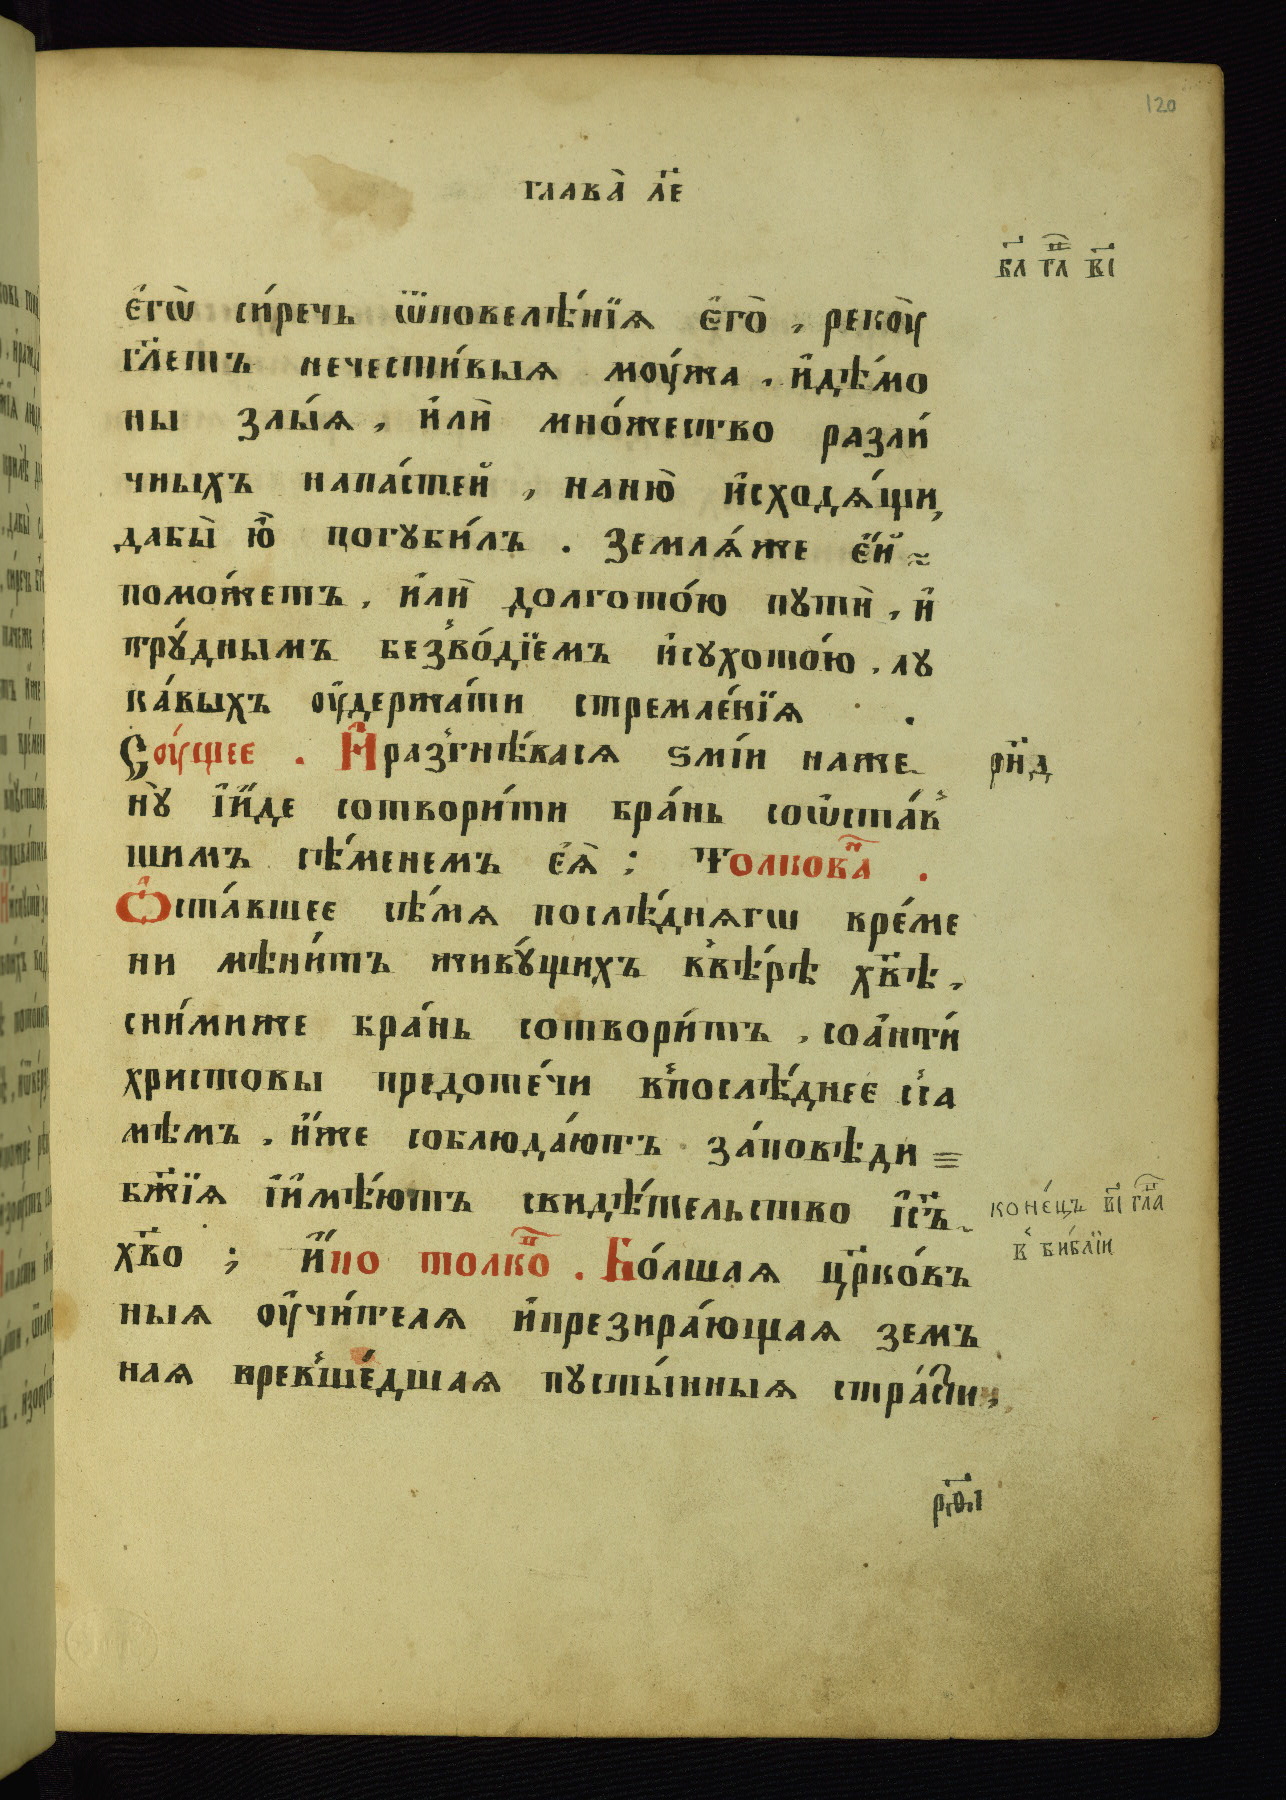 120
глава̀ л҃е
в҃л г҃л в҃і
є҆гѡ̀ си́речь ѿповелѣ́нїѧ є҆го̀ , рекꙋ̀
гл҃етъ нечести́выѧ мꙋ́жа . и҆дѣ́мо
ны злы́ѧ , и҆лѝ мно́жество разли́
чныхъ напа́стей , наню̀ и҆сходѧ́щи,
дабы̀ ю҆̀ погуби́лъ . землѧ́же є҆́й
помо́жетъ , и҆лѝ долгото́ю путѝ , и҆
тру́днымъ безво́дїемъ и҆сухото́ю , лу
ка́выхъ ᲂу҆держа́ти стремле́нїѧ .
Сꙋ́щее . И҆разгнѣ́васѧ ѕмі́и наже
нꙋ̀ і҆и҆́де сотвори́ти бра́нь соѡ҆ста́в
шимъ сѣ́менемъ є҆ѧ̀ ; Толкова҃ .
Ѡ҆ста́вшее сѣ́мѧ послѣ́днѧгѡ вре́ме
ни мѣни́тъ живꙋ́щихъ ввѣ́рѣ хв҃ѣ ,
сни́миже бра́нь сотвори́тъ , соа҆нти́
христовы предоте́чи впослѣ́днее са
мѣмъ . и҆̀же соблюда́ютъ за́повѣди
бж҃їѧ і҆и҆мѣ́ютъ свидѣ́тельство і҆с҃ъ
хв҃о ; и҆́но толко҃ . Бо́лшаѧ цр҃ко́въ
ныѧ ᲂу҆чи́телѧ и҆презира́ющаѧ земъ
наѧ преше́дшаѧ пусты́нныѧ стра́сти ,
рн҃д
коне́цъ в҃і гл҃а
в би́блїи
р҃ѳі